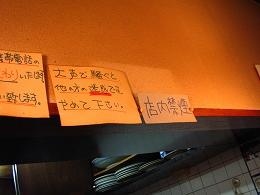 携帯電話の
いたします。
大声で騒ぐと
他の方の迷惑です。
やめて下さい。
店内禁煙。